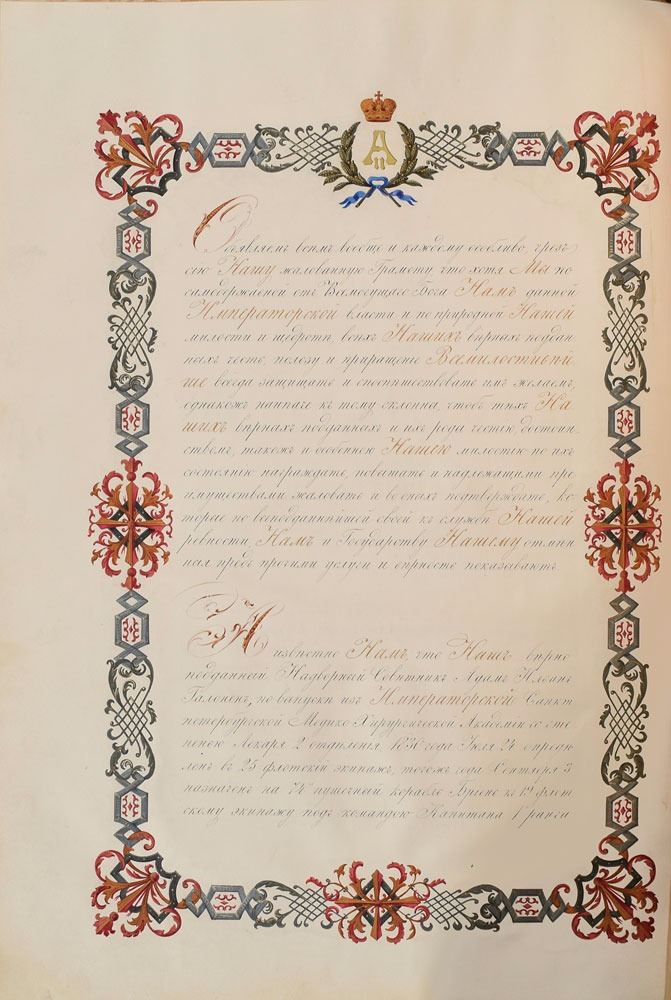 А II
Объявляемъ всѣмъ вообще и каждому особливо, чрезъ
сію Нашу жалованную Грамоту, что хотя Мы по
самодержавной отъ Всемогущаго Бога Намъ данной
Императорской власти и по природной Нашей
милости и щедротѣ, всѣхъ Нашихъ вѣрныхъ поддан
ныхъ честь, пользу и приращеніе Всемилостивѣй
ше всегда защищать и споспѣшествовать имъ желаемъ,
однакожъ наипаче къ тому склонны, чтобъ тѣхъ На
шихъ вѣрныхъ подданныхъ и ихъ рода честію, достоин
ствомъ, такожъ и особенною Нашею милостію по ихъ
состоянію награждать, повышать и надлежащими пре
имуществами жаловать и во оныхъ подтверждать, ко
торые по всеподданнѣйшей своей къ службѣ Нашей
ревности, Намъ и Государству Нашему отмѣн
ныя предъ прочими услуги и вѣрность показываютъ.
А извѣстно Намъ, что Нашъ вѣрно
подданный Надворный Совѣтникъ Адамъ
по выпускѣ изъ Императорской Санкт
петербургской Медико Хирургической Академіи со сте
пенью Лекаря 2 отдѣленія, 1830 года Іюля 24 опредѣ
ленъ въ 23 флотскій экипажъ, тогожъ года Сентября 3
назначенъ на 74 пушечный корабль къ 19 флот
скому экипажу подъ командою Капитана 1 ранга